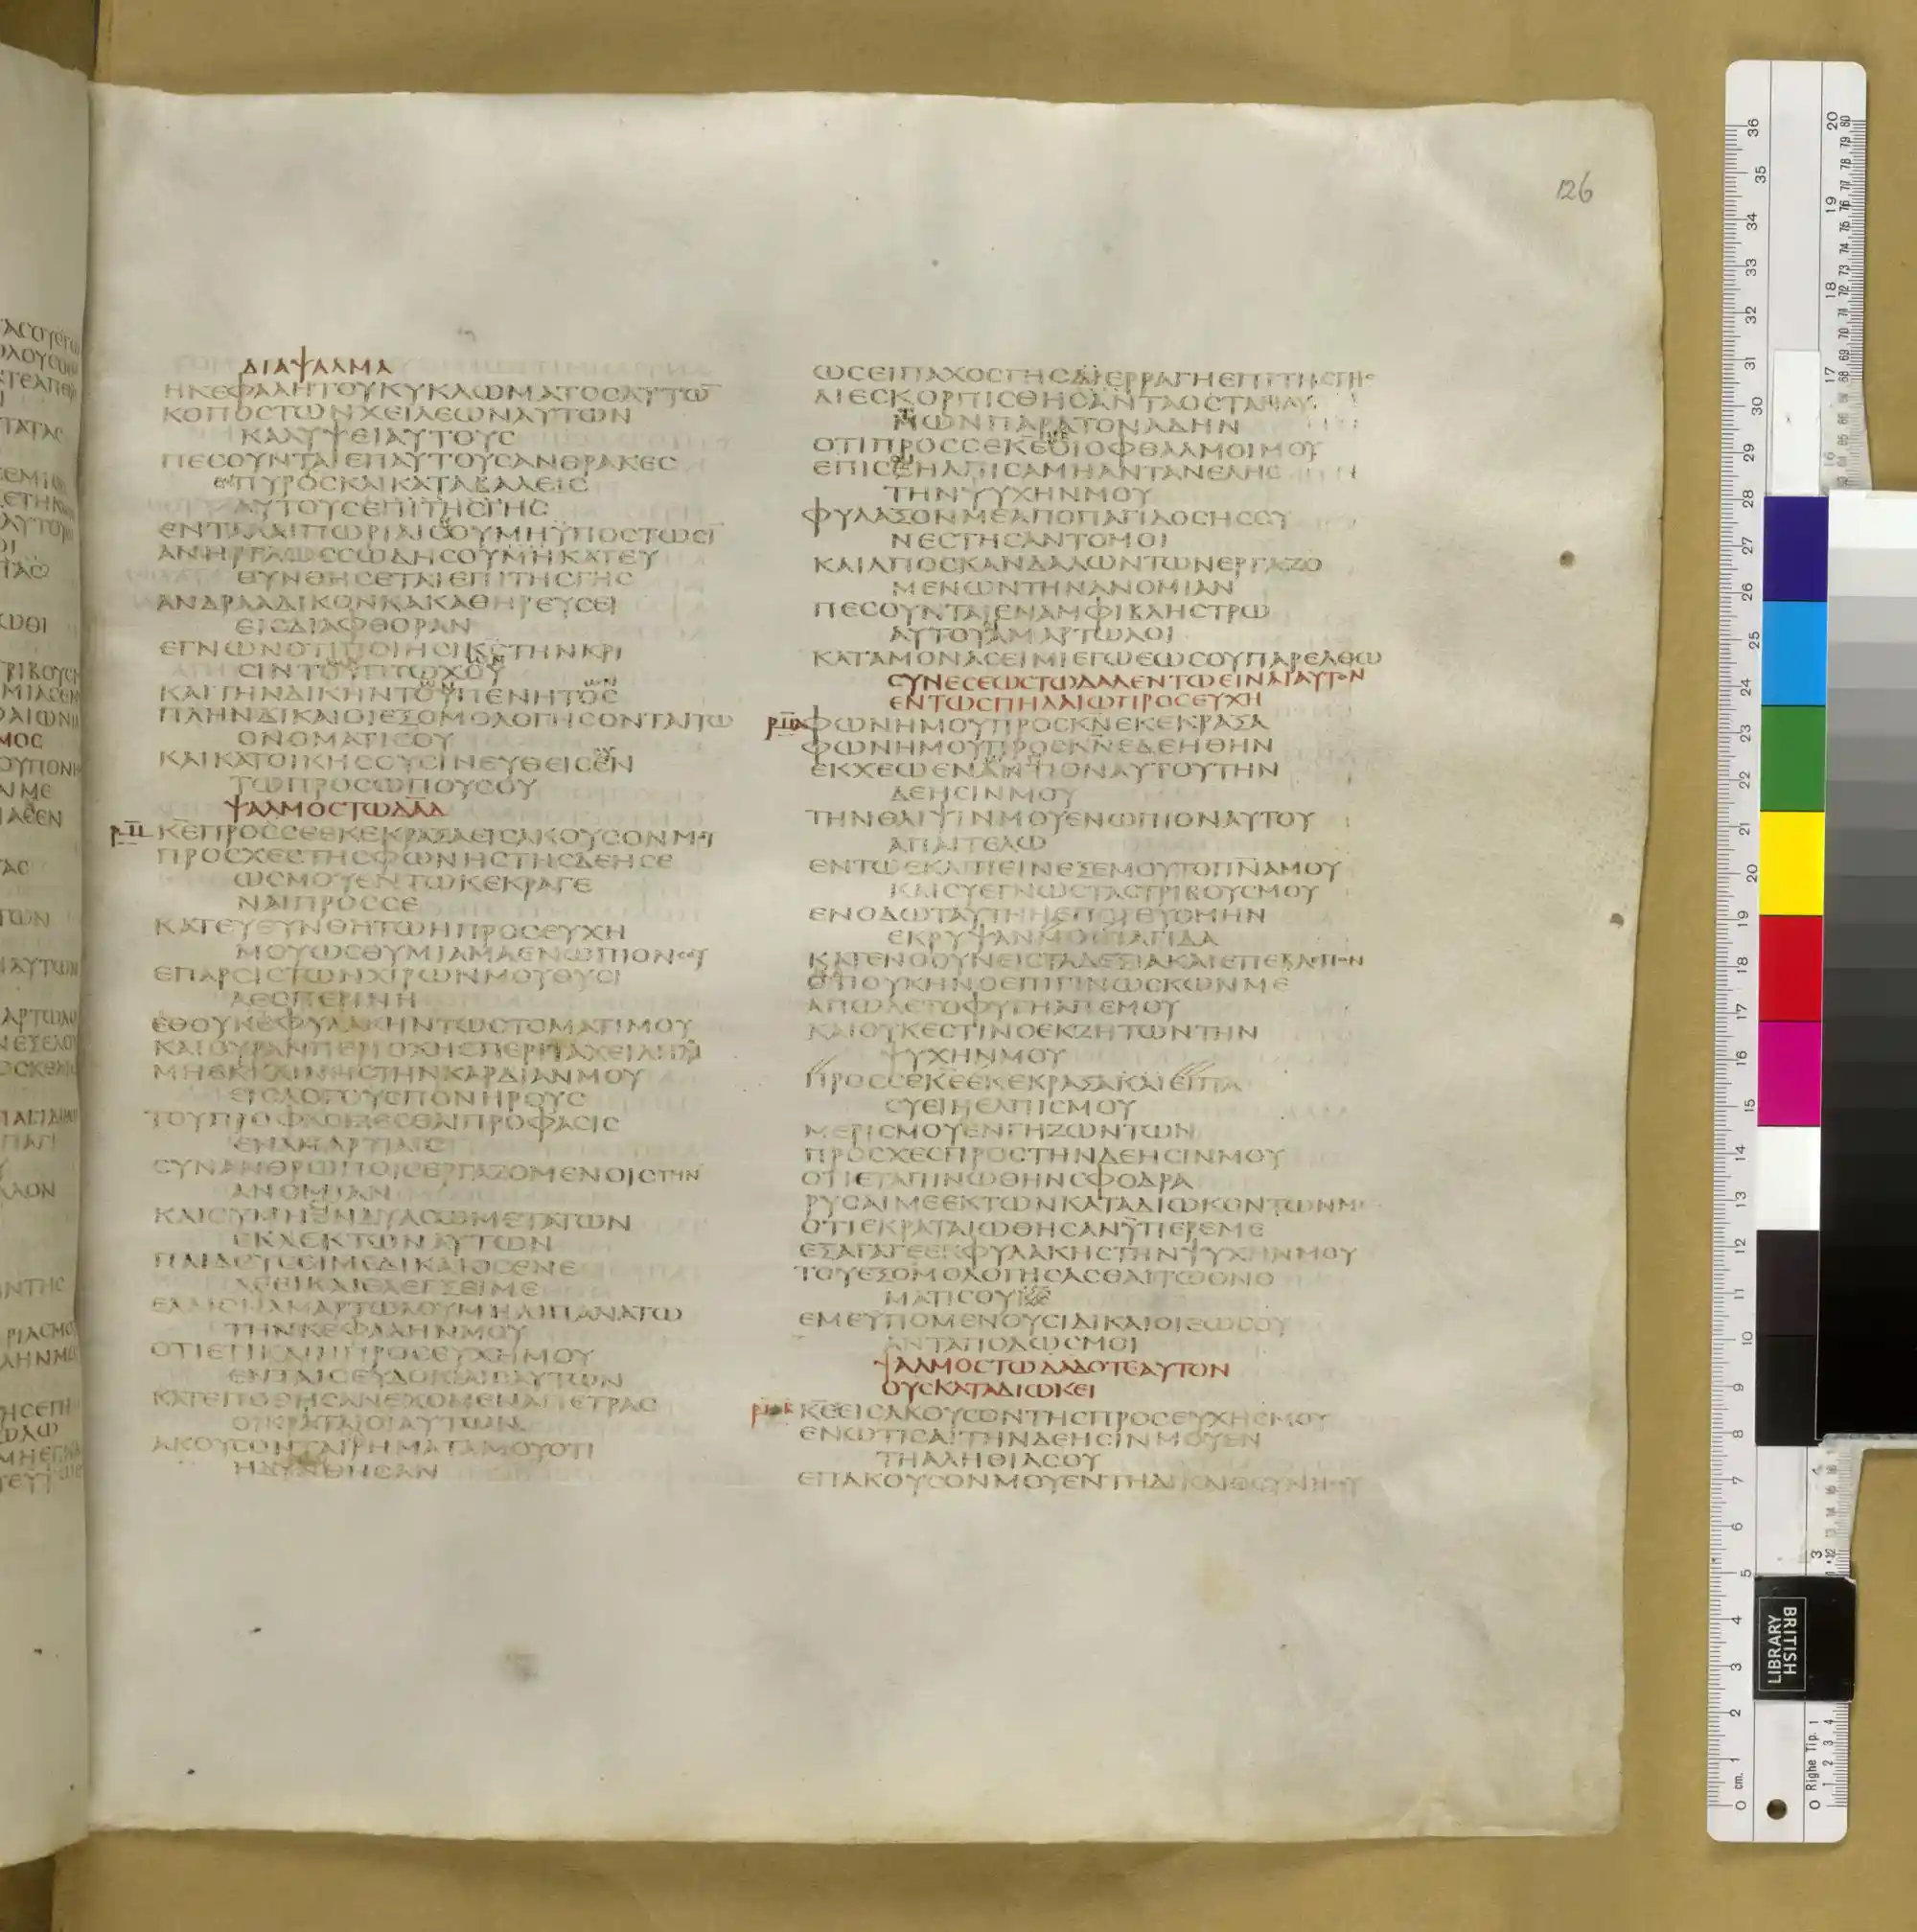 126
ΔΙΑΨΑΛΜΑ
ΗΚΕΦΑΛΗΤΟΥΚΥΚΛΩΜΑΤΟСΑΥΤΩ̅
ΚΟΠΟСΤΩΝΧΕΙΛΕΩΝΑΥΤΩΝ
ΚΑΛΥΨΕΙΑΥΤΟΥС
ΠΕСΟΥΝΤΑΙΕΠΑΥΤΟΥСΑΝΘΡΑΚΕС
ΠΥΡΟСΚΑΙΚΑΤΑΒΑΛΕΙС
ΑΥΤΟΥСΕΠΙΤΗСΓΗС
ΕΝΤΑΛΑΙΠΩΡΙΑΙСΟΥΜΗΥΠΟСΤΩСΙ̅
ΑΝΗΡΓΛΩССΩΔΗСΟΥΜΗΚΑΤΕΥ
ΘΥΝΘΗСΕΤΑΙΕΠΙΤΗСΓΗС
ΑΝΔΡΑΑΔΙΚΟΝΚΑΚΑΘΗΡΕΥСΕΙ
ΕΙСΔΙΑΦΘΟΡΑΝ
ΕΓΝΩΝΟΤΙΠΟΙΗСΙΚ̅С̅ΤΗΝΚΡΙ
СΙΝΤΟΥΠΤΩΧΟΥ
ΚΑΙΤΗΝΔΙΚΗΝΤΟΥΠΕΝΗΤΟС
ΠΛΗΝΔΙΚΑΙΟΙΕΞΟΜΟΛΟΓΗСΟΝΤΑΙΤΩ
ΟΝΟΜΑΤΙСΟΥ
ΚΑΙΚΑΤΟΙΚΗСΟΥСΙΝΕΥΘΕΙСΕΝ
ΤΩΠΡΟСΩΠΟΥСΟΥ
ΨΑΛΜΟСΤΩΔΑΔ
ΡΜ ΚΕΠΡΟССΕΕΚΕΚΡΑΞΑΕΙСΑΚΟΥСΟΝΜΟΥ
ΠΡΟСΧΕСΤΗСΦΩΝΗСΤΗСΔΕΗСΕ
ΩСΜΟΥΕΝΤΩΚΕΚΡΑΓΕ
ΝΑΙΠΡΟССΕ
ΚΑΤΕΥΘΥΝΘΗΤΩΗΠΡΟСΕΥΧΗ
ΜΟΥΩСΘΥΜΙΑΜΑΕΝΩΠΙΟΝСΟΥ
ΕΠΑΡСΙСΤΩΝΧΙΡΩΝΜΟΥΘΥСΙ
ΑΕСΠΕΡΙΝΗ
ΕΘΟΥΚΕΦΥΛΑΚΗΝΤΩСΤΟΜΑΤΙΜΟΥ
ΚΑΙΘΥΡΑΝΠΕΡΙΟΧΗСΠΕΡΙΤΑΧΕΙΛΗΜΟΥ
ΜΗΕΚΚΛΙΝΗСΤΗΝΚΑΡΔΙΑΝΜΟΥ
ΕΙСΛΟΓΟΥСΠΟΝΗΡΟΥС
ΤΟΥΠΡΟΦΑСΙΖΕСΘΑΙΠΡΟΦΑСΙС
ΕΝΑΜΑΡΤΙΑΙС
СΥΝΑΝΘΡΩΠΟΙСΕΡΓΑΖΟΜΕΝΟΙСΤΗΝ
ΑΝΟΜΙΑΝ
ΚΑΙΟΥΜΗСΥΝΔΥΑСΩΜΕΤΑΤΩΝ
ΕΚΛΕΚΤΩΝΑΥΤΩΝ
ΠΑΙΔΕΥСΕΙΜΕΔΙΚΑΙΟСΕΝΕ
ΛΕΕΙΚΑΙΕΛΕΓΞΕΙΜΕ
ΕΛΑΙΟΝΑΜΑΡΤΩΛΟΥΜΗΛΙΠΑΝΑΤΩ
ΤΗΝΚΕΦΑΛΗΝΜΟΥ
ΟΤΙΕΤΙΚΑΙΗΠΡΟСΕΥΧΗΜΟΥ
ΕΝΤΑΙСΕΥΔΟΚΙΑΙСΑΥΤΩΝ
ΚΑΤΕΠΟΘΗСΑΝΕΧΟΜΕΝΑΠΕΤΡΑС
ΟΙΚΡΑΤΑΙΟΙΑΥΤΩΝ
ΑΚΟΥСΟΝΤΑΙΡΗΜΑΤΑΜΟΥΟΤΙ
ΗΔΥΝΘΗСΑΝ
ΩСΕΙΠΑΧΟСΓΗСΔΙΕΡΡΑΓΗΕΠΙΤΗСΓΗС
ΔΙΕСΚΟΡΠΙСΘΗСΑΝΤΑΟСΤΑ
ΜΩΝΠΑΡΑΤΟΝΑΔΗΝ
ΟΤΙΠΡΟССΕΚΕΟΙΟΦΘΑΛΜΟΙΜΟΥ
ΕΠΙСΕΗΛΠΙСΑΜΗΑΝΤΑΝΕΛΗС
ΤΗΝΨΥΧΗΝΜΟΥ
ΦΥΛΑΞΟΝΜΕΑΠΟΠΑΓΙΔΟСΗССΥ
ΝΕСΤΗСΑΝΤΟΜΟΙ
ΚΑΙΑΠΟСΚΑΝΔΑΛΩΝΤΩΝΕΡΓΑΖΟ
ΜΕΝΩΝΤΗΝΑΝΟΜΙΑΝ
ΠΕСΟΥΝΤΑΙΕΝΑΜΦΙΒΛΗСΤΡΩ
ΑΥΤΟΥΑΜΑΡΤΩΛΟΙ
ΚΑΤΑΜΟΝΑСΕΙΜΙΕΓΩΕΩСΟΥΠΑΡΕΛΘΩ
СΥΝΕСΕΩСΤΩΔΑΔΕΝΤΩΕΙΝΑΙΑΥΤΟΝ
ΕΝΤΩСΠΗΛΑΙΩΠΡΟСΕΥΧΗ
ΡΜΑ ΦΩΝΗΜΟΥΠΡΟСΚΝΕΚΕΚΡΑΞΑ
ΦΩΝΗΜΟΥΠΡΟСΚΝΕΔΕΗΘΗΝ
ΕΚΧΕΩΕΝΑΝΤΙΟΝΑΥΤΟΥΤΗΝ
ΔΕΗСΙΝΜΟΥ
ΤΗΝΘΛΙΨΙΝΜΟΥΕΝΩΠΙΟΝΑΥΤΟΥ
ΑΠΑΓΓΕΛΩ
ΕΝΤΩΕΚΛΙΠΕΙΝΕΞΕΜΟΥΤΟΠΝ̅ΑΜΟΥ
ΚΑΙСΥΕΓΝΩСΤΑСΤΡΙΒΟΥСΜΟΥ
ΕΝΟΔΩΤΑΥΤΗΗΕΠΟΡΕΥΟΜΗΝ
ΕΚΡΥΨΑΝΜΟΙΠΑΓΙΔΑ
ΚΑΤΕΝΟΟΥΝΕΙСΤΑΔΕΞΙΑΚΑΙΕΠΕΒΛΕΠΟΝ
ΟΤΙΟΥΚΗΝΟΕΠΙΓΙΝΩСΚΩΝΜΕ
ΑΠΩΛΕΤΟΦΥΓΗΑΠΕΜΟΥ
ΚΑΙΟΥΚΕСΤΙΝΟΕΚΖΗΤΩΝΤΗΝ
ΨΥΧΗΝΜΟΥ
ΠΡΟССΕΚΕΕΚΕΚΡΑΞΑΚΑΙΕΙΠΑ
СΥΕΙΗΕΛΠΙСΜΟΥ
ΜΕΡΙСΜΟΥΕΝΓΗΖΩΝΤΩΝ
ΠΡΟСΧΕСΠΡΟСΤΗΝΔΕΗСΙΝΜΟΥ
ΟΤΙΕΤΑΠΙΝΩΘΗΝСΦΟΔΡΑ
ΡΥСΑΙΜΕΕΚΤΩΝΚΑΤΑΔΙΩΚΟΝΤΩΝΜΕ
ΟΤΙΕΚΡΑΤΑΙΩΘΗСΑΝΥΠΕΡΕΜΕ
ΕΞΑΓΑΓΕΕΚΦΥΛΑΚΗСΤΗΝΨΥΧΗΝΜΟΥ
ΤΟΥΕΞΟΜΟΛΟΓΗСΑСΘΑΙΤΩΟΝΟ
ΜΑΤΙСΟΥ
ΕΜΕΥΠΟΜΕΝΟΥСΙΔΙΚΑΙΟΙΕΩСΟΥ
ΑΝΤΑΠΟΔΩСΜΟΙ
ΨΑΛΜΟСΤΩΔΑΔΟΤΕΑΥΤΟΝ
ΟΥСΚΑΤΑΔΙΩΚΕΙ
ΡΜΒ ΚΕΕΙСΑΚΟΥСΟΝΤΗСΠΡΟСΕΥΧΗСΜΟΥ
ΕΝΩΤΙСΑΙΤΗΝΔΕΗСΙΝΜΟΥΕΝ
ΤΗΑΛΗΘΙΑСΟΥ
ΕΠΑΚΟΥСΟΝΜΟΥΕΝΤΗΔΙΚΑΙΟСΥΝΗСΟΥ